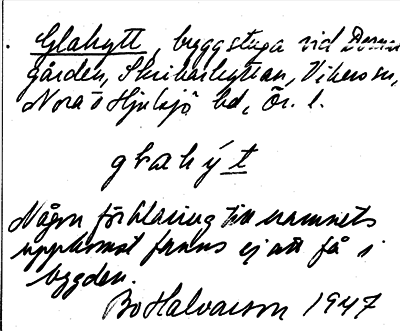 Glahytt, byggstuga vid
gården, Skrikarhyttan, Vikers sn,
Nora o Hjulsjö bd, Ör. l.
glahýt
Någon förklaring till namnets
uppkomst fanns ej att få i
bygden.
Bo Halvarson 1947